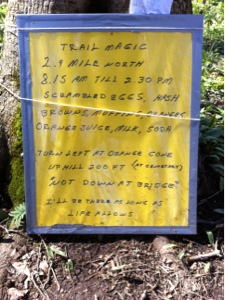 TRAIL MAGIC
2.9 MILE NORTH
8.15 AM TILL 2 30 PM
SCRAMBLED EGGS, HASH
BROWNS, MUFFINS,
ORANGE JUICE, MILK, SODA
TURN LEFT AT ORANGE CONE
UP HILL 200 FT (AT CEMETERY)
"NOT DOWN AT BRIDGE"
I'LL BE THERE AS LONG AS
LIFE ALLOWS